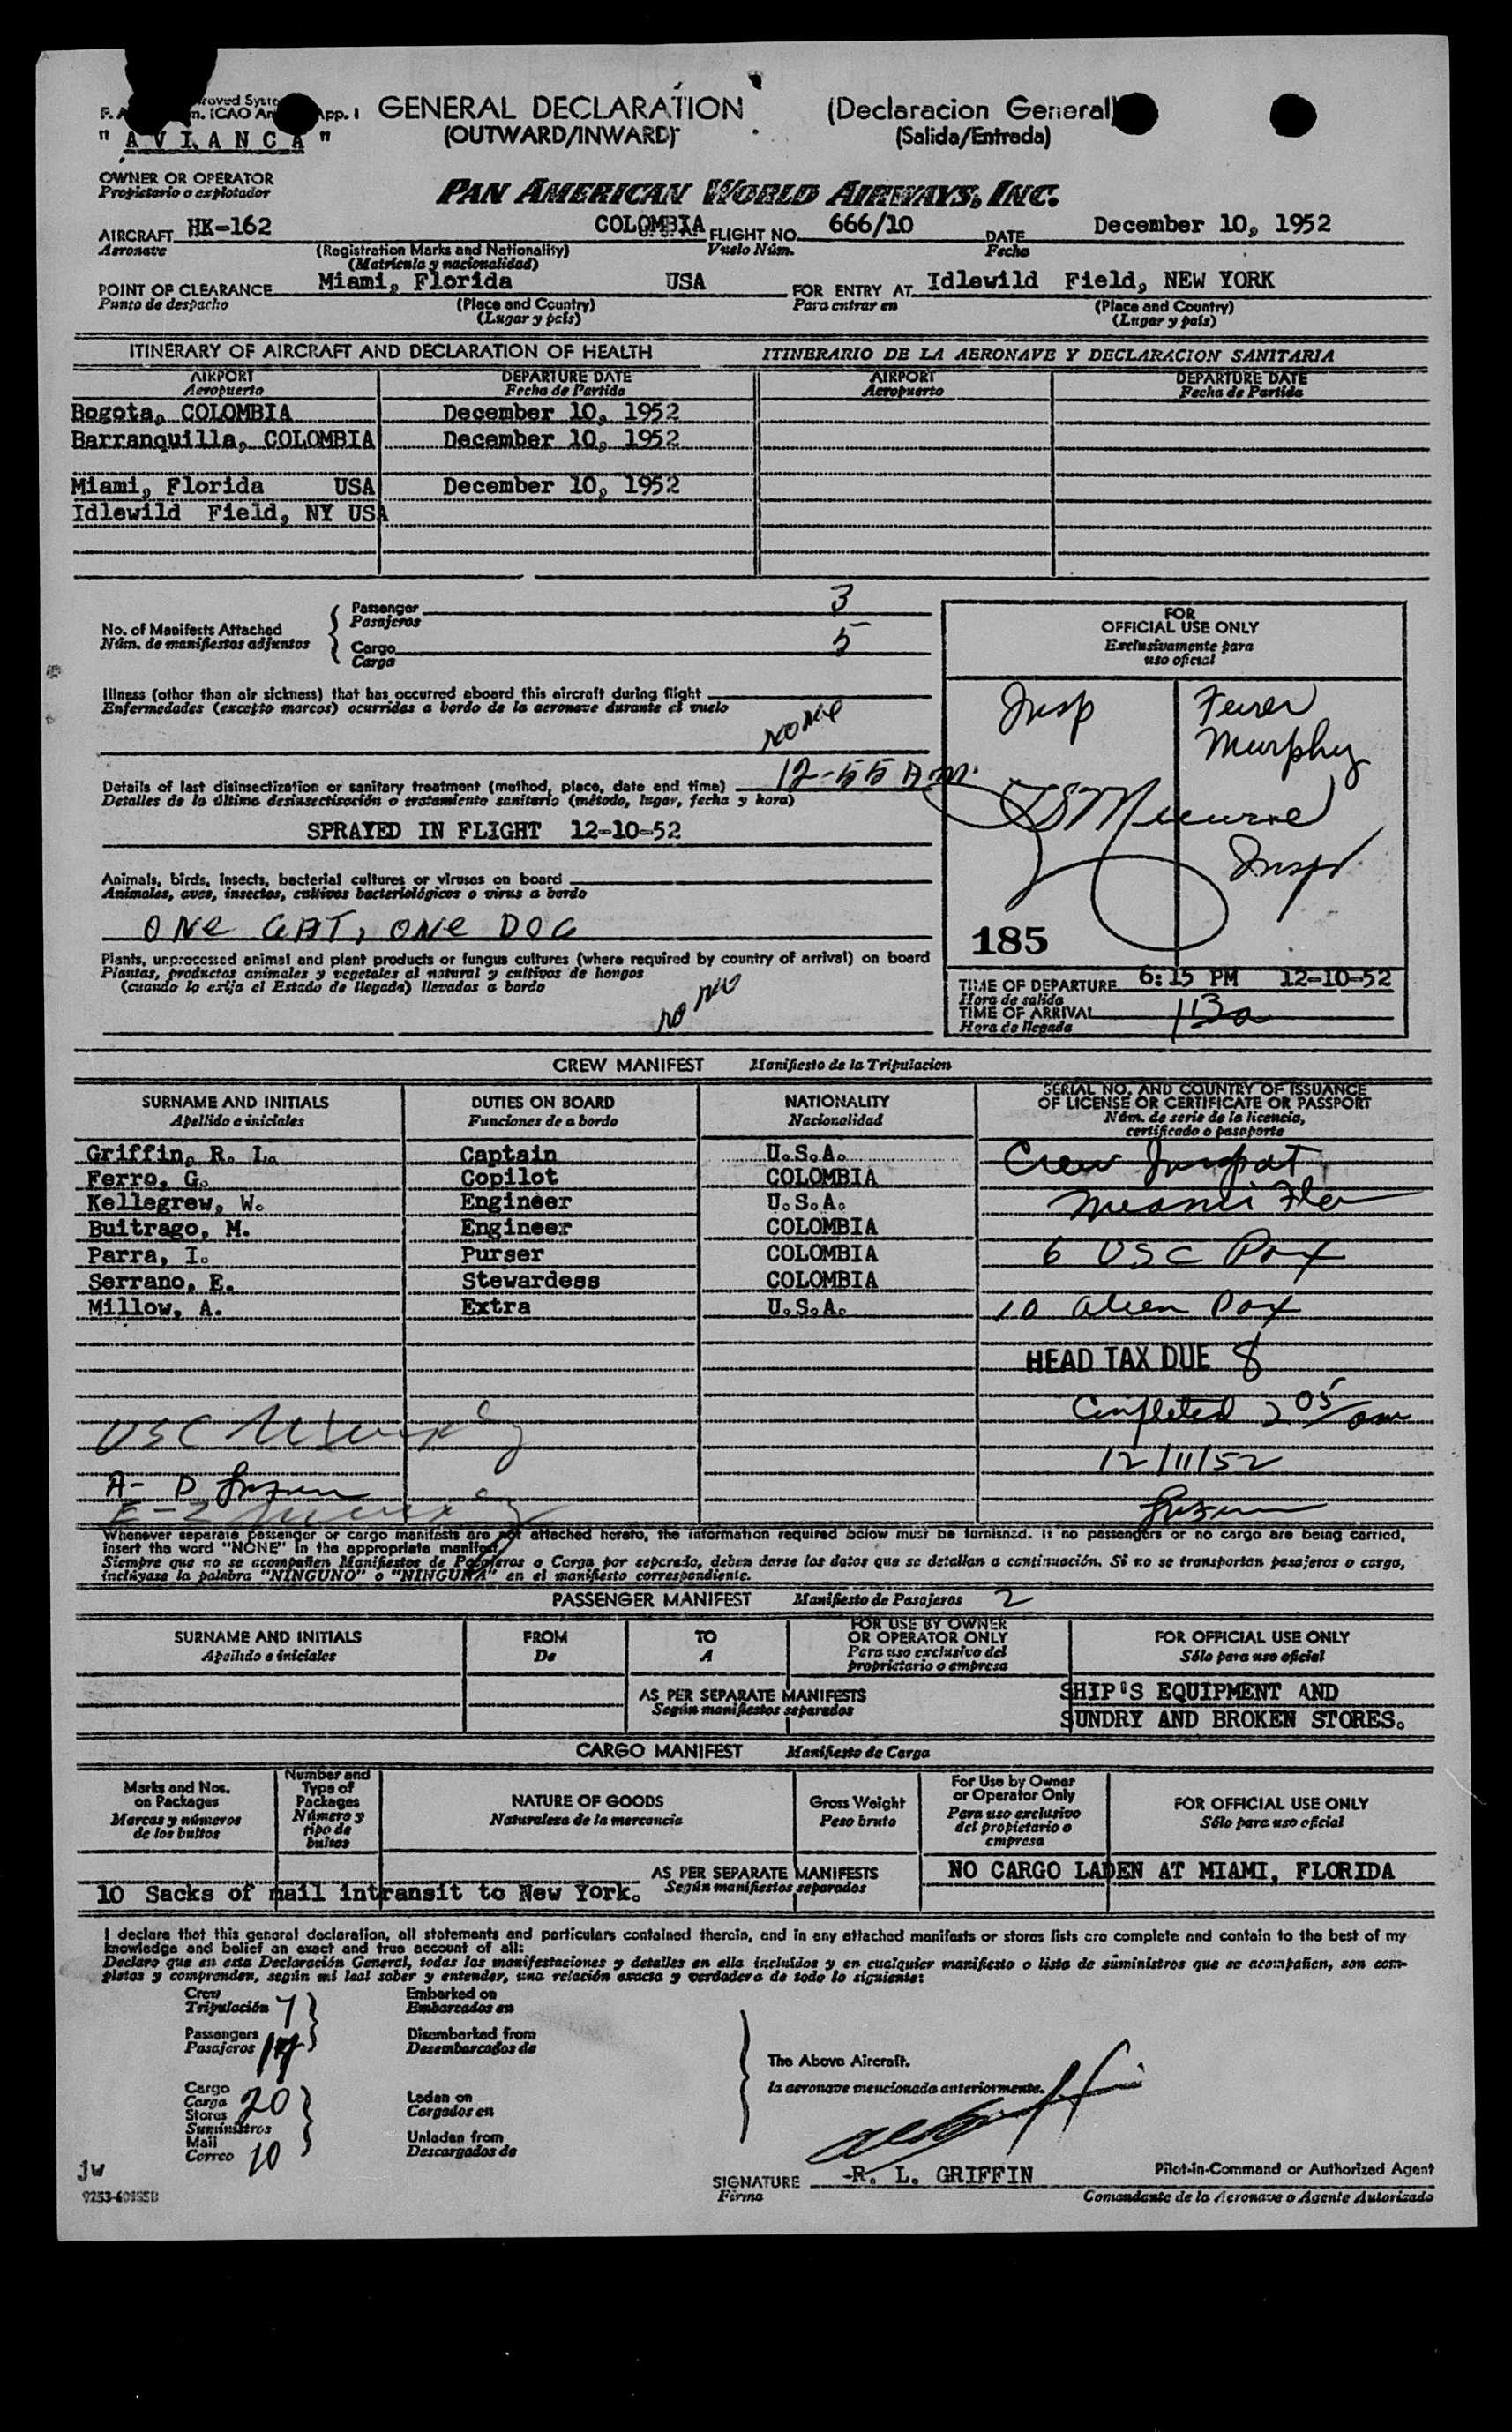 GENERAL DECLARATION (Declaracion General)
(OUTWARD/INWARD) (Salida/Entrada)
" A V I A N C A "
OWNER OR OPERATOR
Propietario o explotador
PAN AMERICAN WORLD AIRWAYS, INC.
AIRCRAFT HK-162 COLOMBIA FLIGHT NO. 666/10 DATE December 10, 1952
Aeronave (Registration Marks and Nationality) Vuelo Núm. Fecha
(Matricula y nacionalidad)
POINT OF CLEARANCE Miami, Florida USA FOR ENTRY AT Idlewild Field, NEW YORK
Punto de despacho (Place and Country) Para entrar en (Place and Country)
(Lugar y país) (Lugar y país)
ITINERARY OF AIRCRAFT AND DECLARATION OF HEALTH ITINERARIO DE LA AERONAVE Y DECLARACION SANITARIA
AIRPORT DEPARTURE DATE AIRPORT DEPARTURE DATE
Aeropuerto Fecha de Partida Aeropuerto Fecha de Partida
Bogota, COLOMBIA December 10, 1952
Barranquilla, COLOMBIA December 10, 1952
Miami, Florida USA December 10, 1952
Idlewild Field, NY USA
No. of Manifests Attached
Núm. de manifiestos adjuntos
Passenger 3
Pasajeros
Cargo 5
Carga
FOR
OFFICIAL USE ONLY
Exclusivamente para
uso oficial
Illness (other than air sickness) that has occurred aboard this aircraft during flight
Enfermedades (excepto mareos) ocurridas a bordo de la aeronave durante el vuelo
NONE
Insp
Murphy
Details of last disinsectization or sanitary treatment (method, place, date and time) 12-55 A.M.
Detalles de la última desinsectisación o tratamiento sanitario (método, lugar, fecha y hora)
SPRAYED IN FLIGHT 12-10-52
Insp
Animals, birds, insects, bacterial cultures or viruses on board
Animales, aves, insectos, cultivos bacteriológicos o virus a bordo
ONE CAT, ONE DOG
185
Plants, unprocessed animal and plant products or fungus cultures (where required by country of arrival) on board
Plantas, productos animales y vegetales al natural y cultivos de hongos
(cuando lo exija el Estado de llegada) llevados a bordo
TIME OF DEPARTURE 6:15 PM 12-10-52
Hora de salida
TIME OF ARRIVAL
Hora de llegada
CREW MANIFEST Manifiesto de la Tripulacion
SURNAME AND INITIALS DUTIES ON BOARD NATIONALITY SERIAL NO. AND COUNTRY OF ISSUANCE
OF LICENSE OR CERTIFICATE OR PASSPORT
Apellido e iniciales Funciones de a bordo Nacionalidad Núm. de serie de la licencia,
certificado o pasaporte
Griffin, R. L. Captain U.S.A.
Ferro, G. Copilot COLOMBIA
Kellegrew, W. Engineer U.S.A.
Buitrago, M. Engineer COLOMBIA
Parra, I. Purser COLOMBIA 6 USC Pax
Serrano, E. Stewardess COLOMBIA
Millow, A. Extra U.S.A. 10 alien Pax
HEAD TAX DUE 8
Completed 2 05/am
12/11/52
Whenever separate passenger or cargo manifests are not attached hereto, the information required below must be furnished. If no passengers or no cargo are being carried,
insert the word "NONE" in the appropriate manifest.
Siempre que no se acompañen Manifiestos de Pasajeros o Carga por separado, deben darse los datos que se detallan a continuación. Si no se transportan pasajeros o carga,
inclúyase la palabra "NINGUNO" o "NINGUNA" en el manifiesto correspondiente.
PASSENGER MANIFEST Manifiesto de Pasajeros 2
SURNAME AND INITIALS FROM TO FOR USE BY OWNER
OR OPERATOR ONLY FOR OFFICIAL USE ONLY
Apellido e iniciales De A Para uso exclusivo del
propietario o empresa Sólo para uso oficial
AS PER SEPARATE MANIFESTS SHIP'S EQUIPMENT AND
Según manifiestos separados SUNDRY AND BROKEN STORES.
CARGO MANIFEST Manifiesto de Carga
Marks and Nos.
on Packages
Marcas y números
de los bultos
Number and
Type of
Packages
Número y
tipo de
bultos
NATURE OF GOODS
Naturaleza de la mercancia
Gross Weight
Peso bruto
For Use by Owner
or Operator Only
Para uso exclusivo
del propietario o
empresa
FOR OFFICIAL USE ONLY
Sólo para uso oficial
AS PER SEPARATE MANIFESTS NO CARGO LADEN AT MIAMI, FLORIDA
10 Sacks of mail intransit to New York. Según manifiestos separados
I declare that this general declaration, all statements and particulars contained therein, and in any attached manifests or stores lists are complete and contain to the best of my
knowledge and belief an exact and true account of all:
Declaro que en esta Declaración General, todas las manifestaciones y detalles en ella incluidos y en cualquier manifiesto o lista de suministros que se acompañen, son com-
pletos y comprenden, según mi leal saber y entender, una relación exacta y verdadera de todo lo siguiente:
Crew Embarked on
Tripulación 7 Embarcados en
Passengers Disembarked from
Pasajeros Desembarcados de
The Above Aircraft.
la aeronave mencionada anteriormente.
Cargo
Carga 20
Stores
Suministros
Mail
Correo 10
Laden on
Cargados en
Unladen from
Descargados de
jw
SIGNATURE R. L. GRIFFIN Pilot-in-Command or Authorized Agent
Firma Comandante de la Aeronave o Agente Autorizado